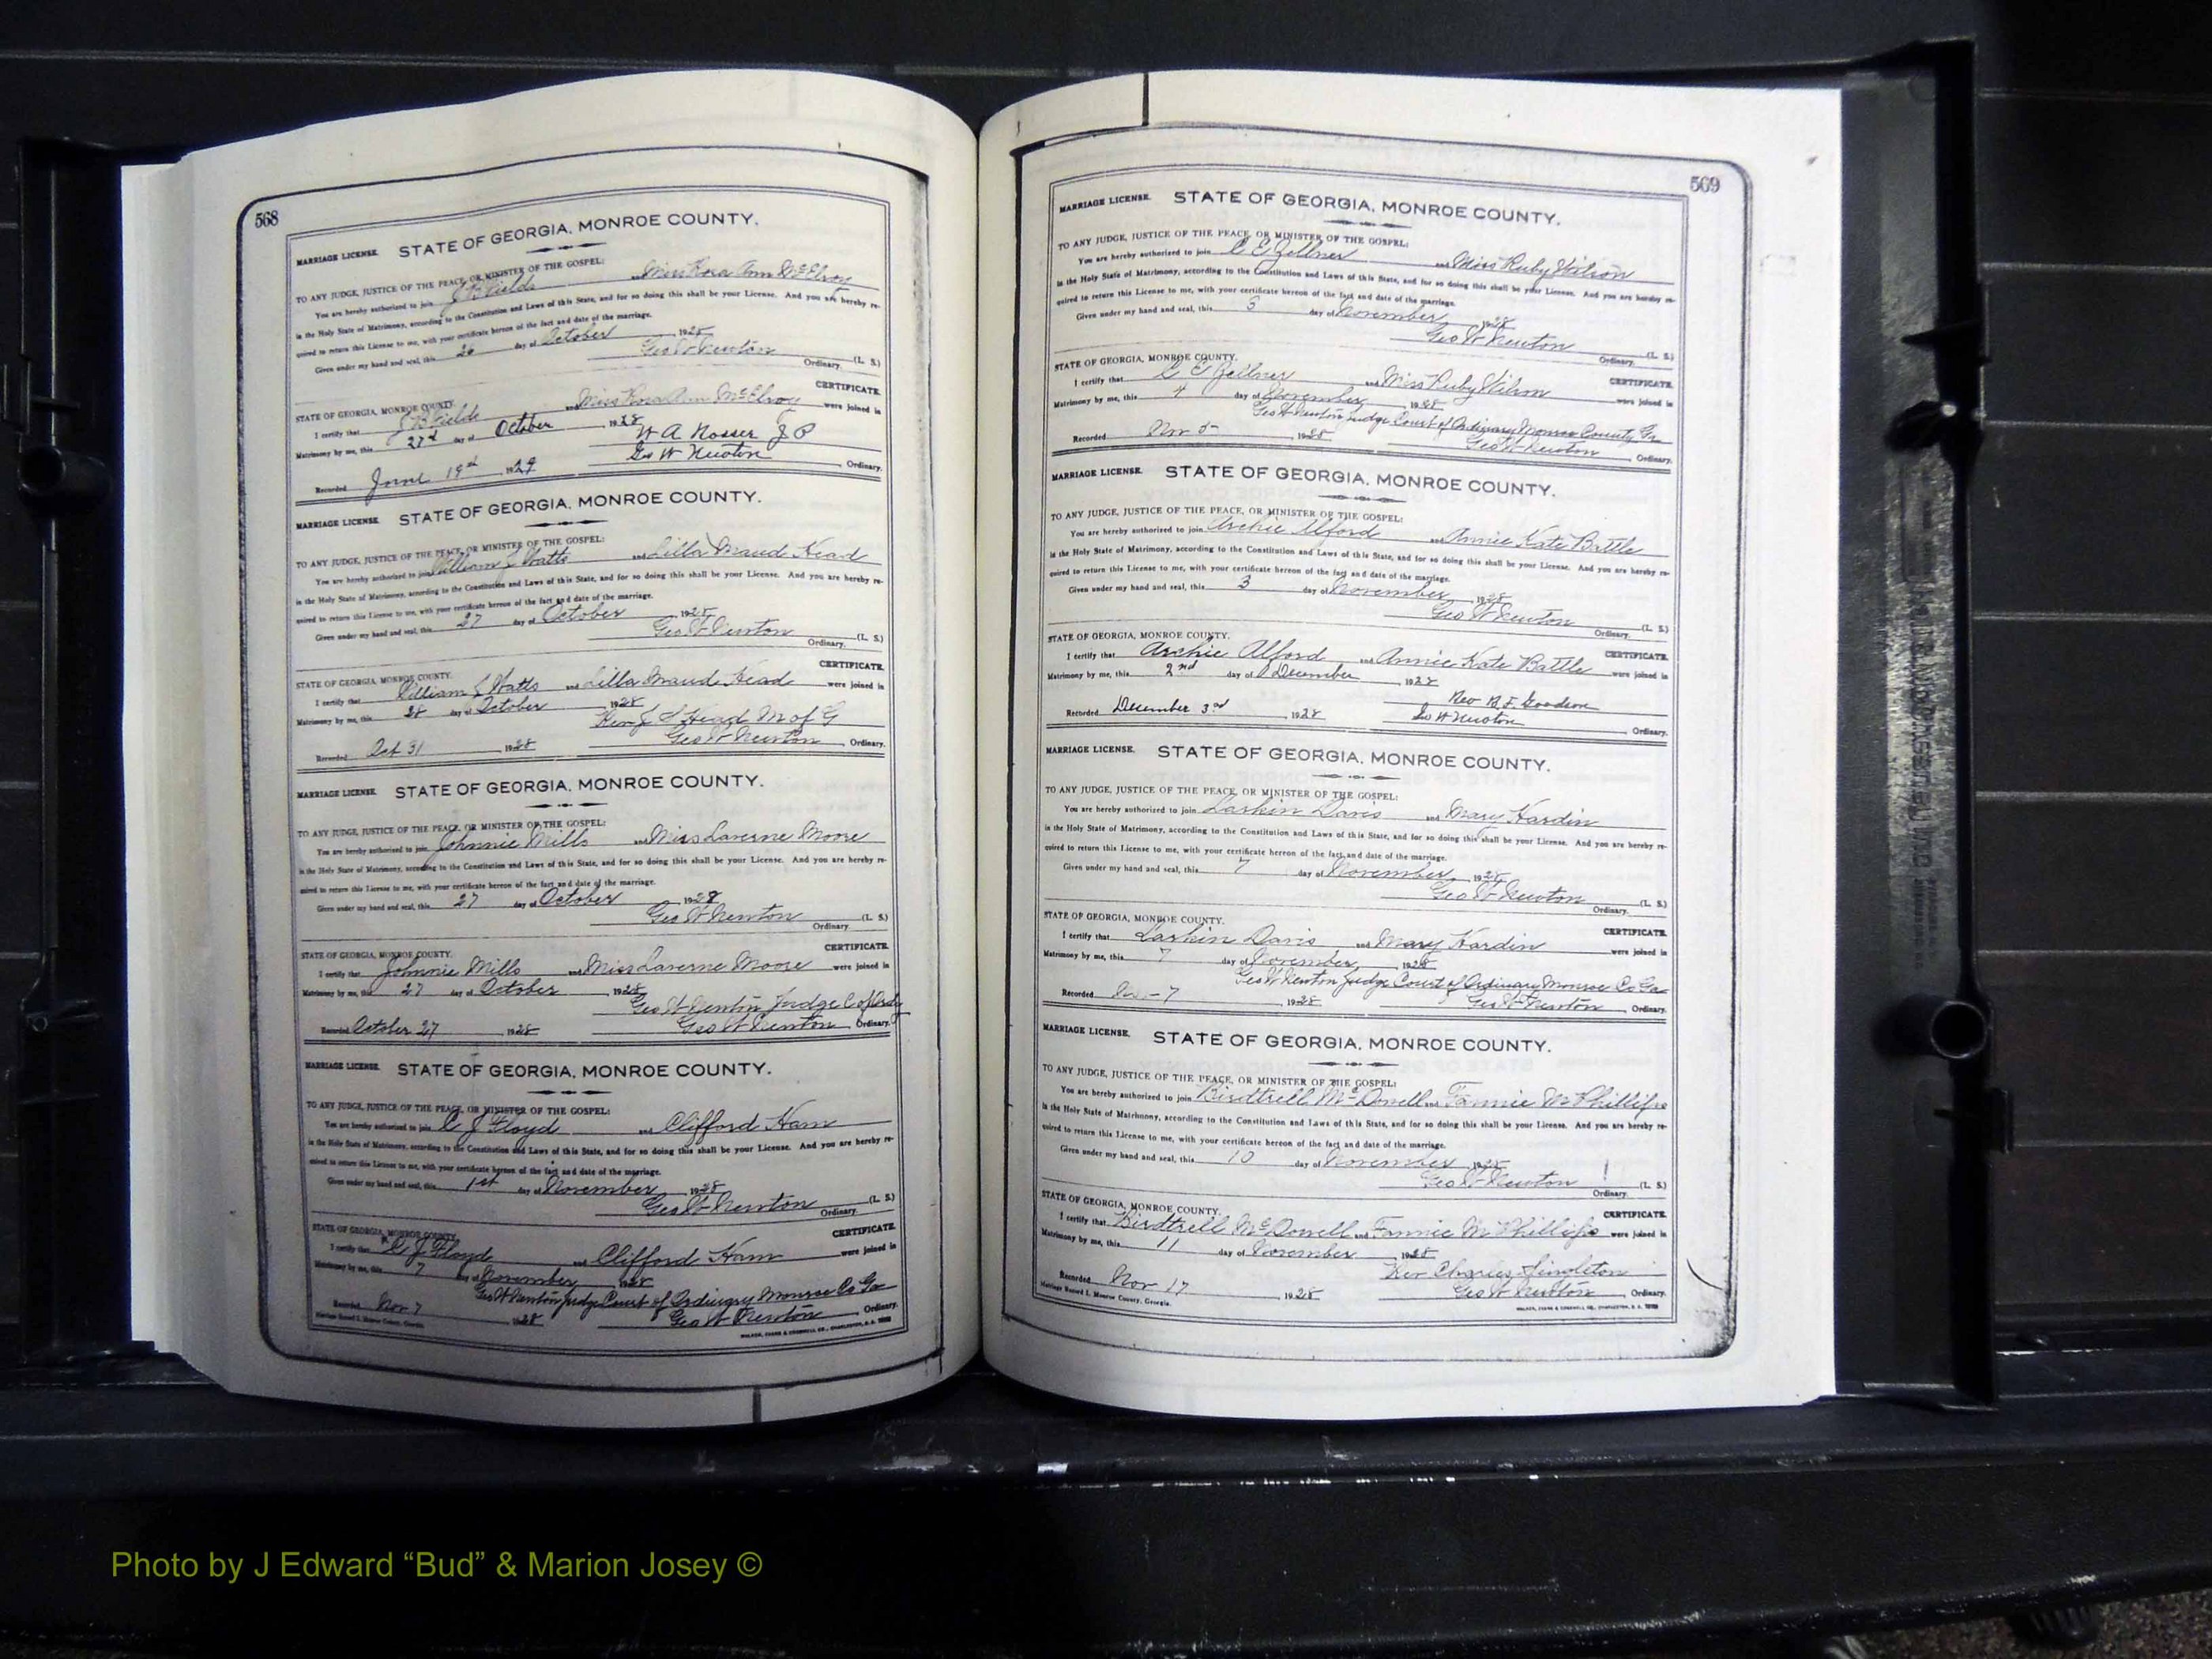 568
MARRIAGE LICENSE. STATE OF GEORGIA, MONROE COUNTY.
TO ANY JUDGE, JUSTICE OF THE PEACE, OR MINISTER OF THE GOSPEL:
You are hereby authorized to join J B Fields and Miss Rosa Ann McElroy
in the Holy State of Matrimony, according to the Constitution and Laws of this State, and for so doing this shall be your License. And you are hereby re-
quired to return this License to me, with your certificate hereon of the fact and date of the marriage.
Given under my hand and seal, this 26 day of October 1928
Geo W Newton (L. S.)
Ordinary.
STATE OF GEORGIA, MONROE COUNTY. CERTIFICATE.
I certify that J B Fields and Miss Rosa Ann McElroy were joined in
Matrimony by me, this 27d day of October 1928
W A Rosser J P
Recorded June 19th 1929 Geo W Newton Ordinary.
MARRIAGE LICENSE. STATE OF GEORGIA, MONROE COUNTY.
TO ANY JUDGE, JUSTICE OF THE PEACE, OR MINISTER OF THE GOSPEL:
You are hereby authorized to join William L Watts and Lilla Maud Head
in the Holy State of Matrimony, according to the Constitution and Laws of this State, and for so doing this shall be your License. And you are hereby re-
quired to return this License to me, with your certificate hereon of the fact and date of the marriage.
Given under my hand and seal, this 27 day of October 1928
Geo W Newton (L. S.)
Ordinary.
STATE OF GEORGIA, MONROE COUNTY. CERTIFICATE.
I certify that William L Watts and Lilla Maud Head were joined in
Matrimony by me, this 28 day of October 1928
Rev J S Head M of G
Recorded Oct 31 1928 Geo W Newton Ordinary.
MARRIAGE LICENSE. STATE OF GEORGIA, MONROE COUNTY.
TO ANY JUDGE, JUSTICE OF THE PEACE, OR MINISTER OF THE GOSPEL:
You are hereby authorized to join Johnnie Mills and Miss Laverne Moore
in the Holy State of Matrimony, according to the Constitution and Laws of this State, and for so doing this shall be your License. And you are hereby re-
quired to return this License to me, with your certificate hereon of the fact and date of the marriage.
Given under my hand and seal, this 27 day of October 1928
Geo W Newton (L. S.)
Ordinary.
STATE OF GEORGIA, MONROE COUNTY. CERTIFICATE.
I certify that Johnnie Mills and Miss Laverne Moore were joined in
Matrimony by me, this 27 day of October 1928
Geo W Newton Judge C of Ordy
Recorded October 27 1928 Geo W Newton Ordinary.
MARRIAGE LICENSE. STATE OF GEORGIA, MONROE COUNTY.
TO ANY JUDGE, JUSTICE OF THE PEACE, OR MINISTER OF THE GOSPEL:
You are hereby authorized to join C J Floyd and Clifford Ham
in the Holy State of Matrimony, according to the Constitution and Laws of this State, and for so doing this shall be your License. And you are hereby re-
quired to return this License to me, with your certificate hereon of the fact and date of the marriage.
Given under my hand and seal, this 1st day of November 1928
Geo W Newton (L. S.)
Ordinary.
STATE OF GEORGIA, MONROE COUNTY. CERTIFICATE.
I certify that C J Floyd and Clifford Ham were joined in
Matrimony by me, this 7 day of November 1928
Geo W Newton Judge Court of Ordinary Monroe Co Ga
Recorded Nov 7 1928 Geo W Newton Ordinary.
Marriage Record I, Monroe County, Georgia.
WALKER, EVANS & COGSWELL CO., CHARLESTON, S. C.
569
MARRIAGE LICENSE. STATE OF GEORGIA, MONROE COUNTY.
TO ANY JUDGE, JUSTICE OF THE PEACE, OR MINISTER OF THE GOSPEL:
You are hereby authorized to join C E Zellner and Miss Ruby Wilson
in the Holy State of Matrimony, according to the Constitution and Laws of this State, and for so doing this shall be your License. And you are hereby re-
quired to return this License to me, with your certificate hereon of the fact and date of the marriage.
Given under my hand and seal, this 3 day of November 1928
Geo W Newton (L. S.)
Ordinary.
STATE OF GEORGIA, MONROE COUNTY. CERTIFICATE.
I certify that C E Zellner and Miss Ruby Wilson were joined in
Matrimony by me, this 4 day of November 1928
Geo W Newton Judge Court of Ordinary Monroe County Ga
Recorded Nov 5 1928 Geo W Newton Ordinary.
MARRIAGE LICENSE. STATE OF GEORGIA, MONROE COUNTY.
TO ANY JUDGE, JUSTICE OF THE PEACE, OR MINISTER OF THE GOSPEL:
You are hereby authorized to join Archie Alford and Annie Kate Battle
in the Holy State of Matrimony, according to the Constitution and Laws of this State, and for so doing this shall be your License. And you are hereby re-
quired to return this License to me, with your certificate hereon of the fact and date of the marriage.
Given under my hand and seal, this 3 day of November 1928
Geo W Newton (L. S.)
Ordinary.
STATE OF GEORGIA, MONROE COUNTY. CERTIFICATE.
I certify that Archie Alford and Annie Kate Battle were joined in
Matrimony by me, this 2nd day of December 1928
Rev B. F. Goodson
Recorded December 3rd 1928 Geo W Newton
Ordinary.
MARRIAGE LICENSE. STATE OF GEORGIA, MONROE COUNTY.
TO ANY JUDGE, JUSTICE OF THE PEACE, OR MINISTER OF THE GOSPEL:
You are hereby authorized to join Larkin Davis and Mary Hardin
in the Holy State of Matrimony, according to the Constitution and Laws of this State, and for so doing this shall be your License. And you are hereby re-
quired to return this License to me, with your certificate hereon of the fact and date of the marriage.
Given under my hand and seal, this 7 day of November 1928
Geo W Newton (L. S.)
Ordinary.
STATE OF GEORGIA, MONROE COUNTY. CERTIFICATE.
I certify that Larkin Davis and Mary Hardin were joined in
Matrimony by me, this 7 day of November 1928
Geo W Newton Judge Court of Ordinary Monroe Co Ga
Recorded 7 1928 Geo W Newton Ordinary.
MARRIAGE LICENSE. STATE OF GEORGIA, MONROE COUNTY.
TO ANY JUDGE, JUSTICE OF THE PEACE, OR MINISTER OF THE GOSPEL:
You are hereby authorized to join Birdtrell McDowell and Fannie M Phillips
in the Holy State of Matrimony, according to the Constitution and Laws of this State, and for so doing this shall be your License. And you are hereby re-
quired to return this License to me, with your certificate hereon of the fact and date of the marriage.
Given under my hand and seal, this 10 day of November 1928
Geo W Newton (L. S.)
Ordinary.
STATE OF GEORGIA, MONROE COUNTY. CERTIFICATE.
I certify that Birdtrell McDowell and Fannie M Phillips were joined in
Matrimony by me, this 11 day of November 1928
Rev Charles Singleton
Recorded Nov 17 1928 Geo W Newton Ordinary.
Marriage Record I, Monroe County, Georgia.
WALKER, EVANS & COGSWELL CO., CHARLESTON, S. C.
Photo by J Edward “Bud” & Marion Josey ©